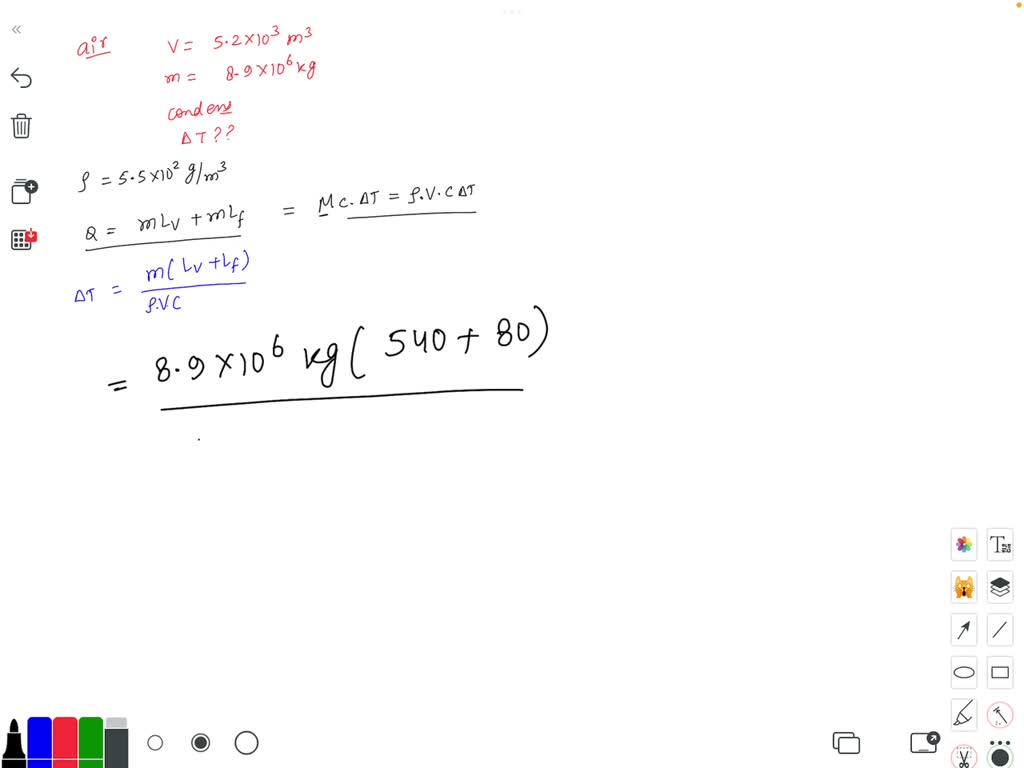 air V = 5.2×10³ m³
m = 8.9×10⁶ kg
condens
ΔT??
ρ = 5.5×10² g/m³
Q = mLv + mLf = Mc.ΔT = ρ.V.CΔT
ΔT = m(Lv+Lf) / ρ.VC
= 8.9×10⁶ kg( 540 + 80)